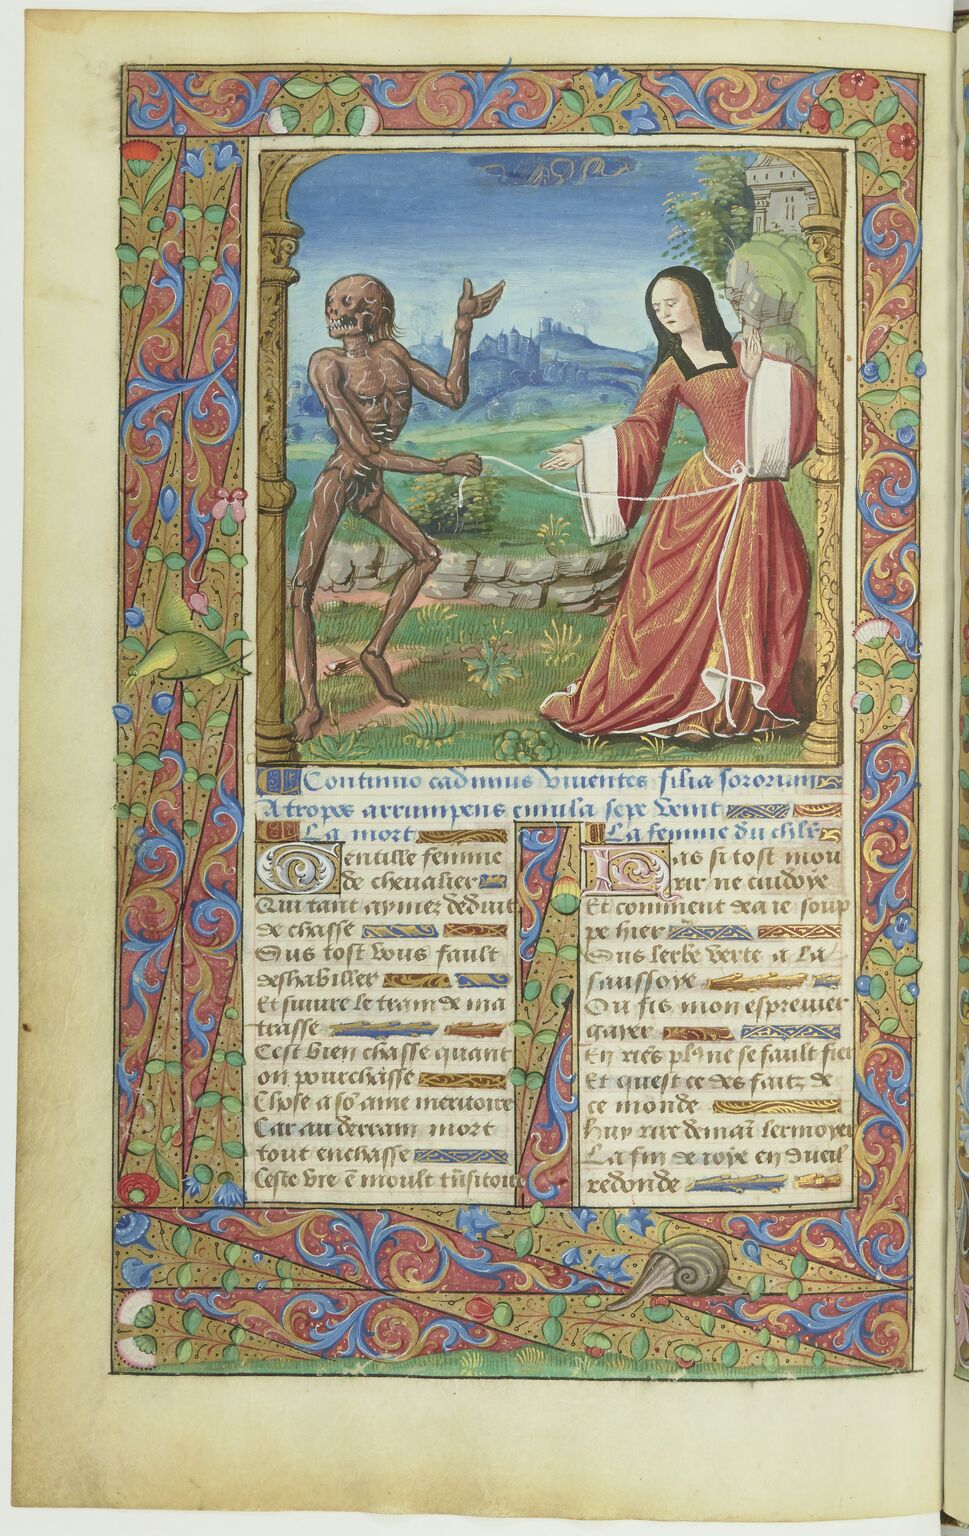 Continuo cadimus viventes filia sororum
Atropos arrumpens cumula sepe venit
La mort
Gentille femme
de chevalier
Qui tant aymez deduit
de chasse
Sus tost vous fault
deshabiller
Et suivre le train de ma
trasse
Cest bien chasse quant
on pourchasse
Chose a so ame meritoire
Car au derrain mort
tout enchasse
Ceste vie e moult tnsitoire
La femme du chlr
Pas si tost mou
rir ne cuidoye
Et comment dea ie soup
pe hier
Sus lerbe verte a la
saussoye
Ou fis mon esprevier
gayer
En ries pl9 ne se fault fier
Et quest ce des faitz de
ce monde
Huy rire demai lermoyer
La fin de ioye en dueil
redonde